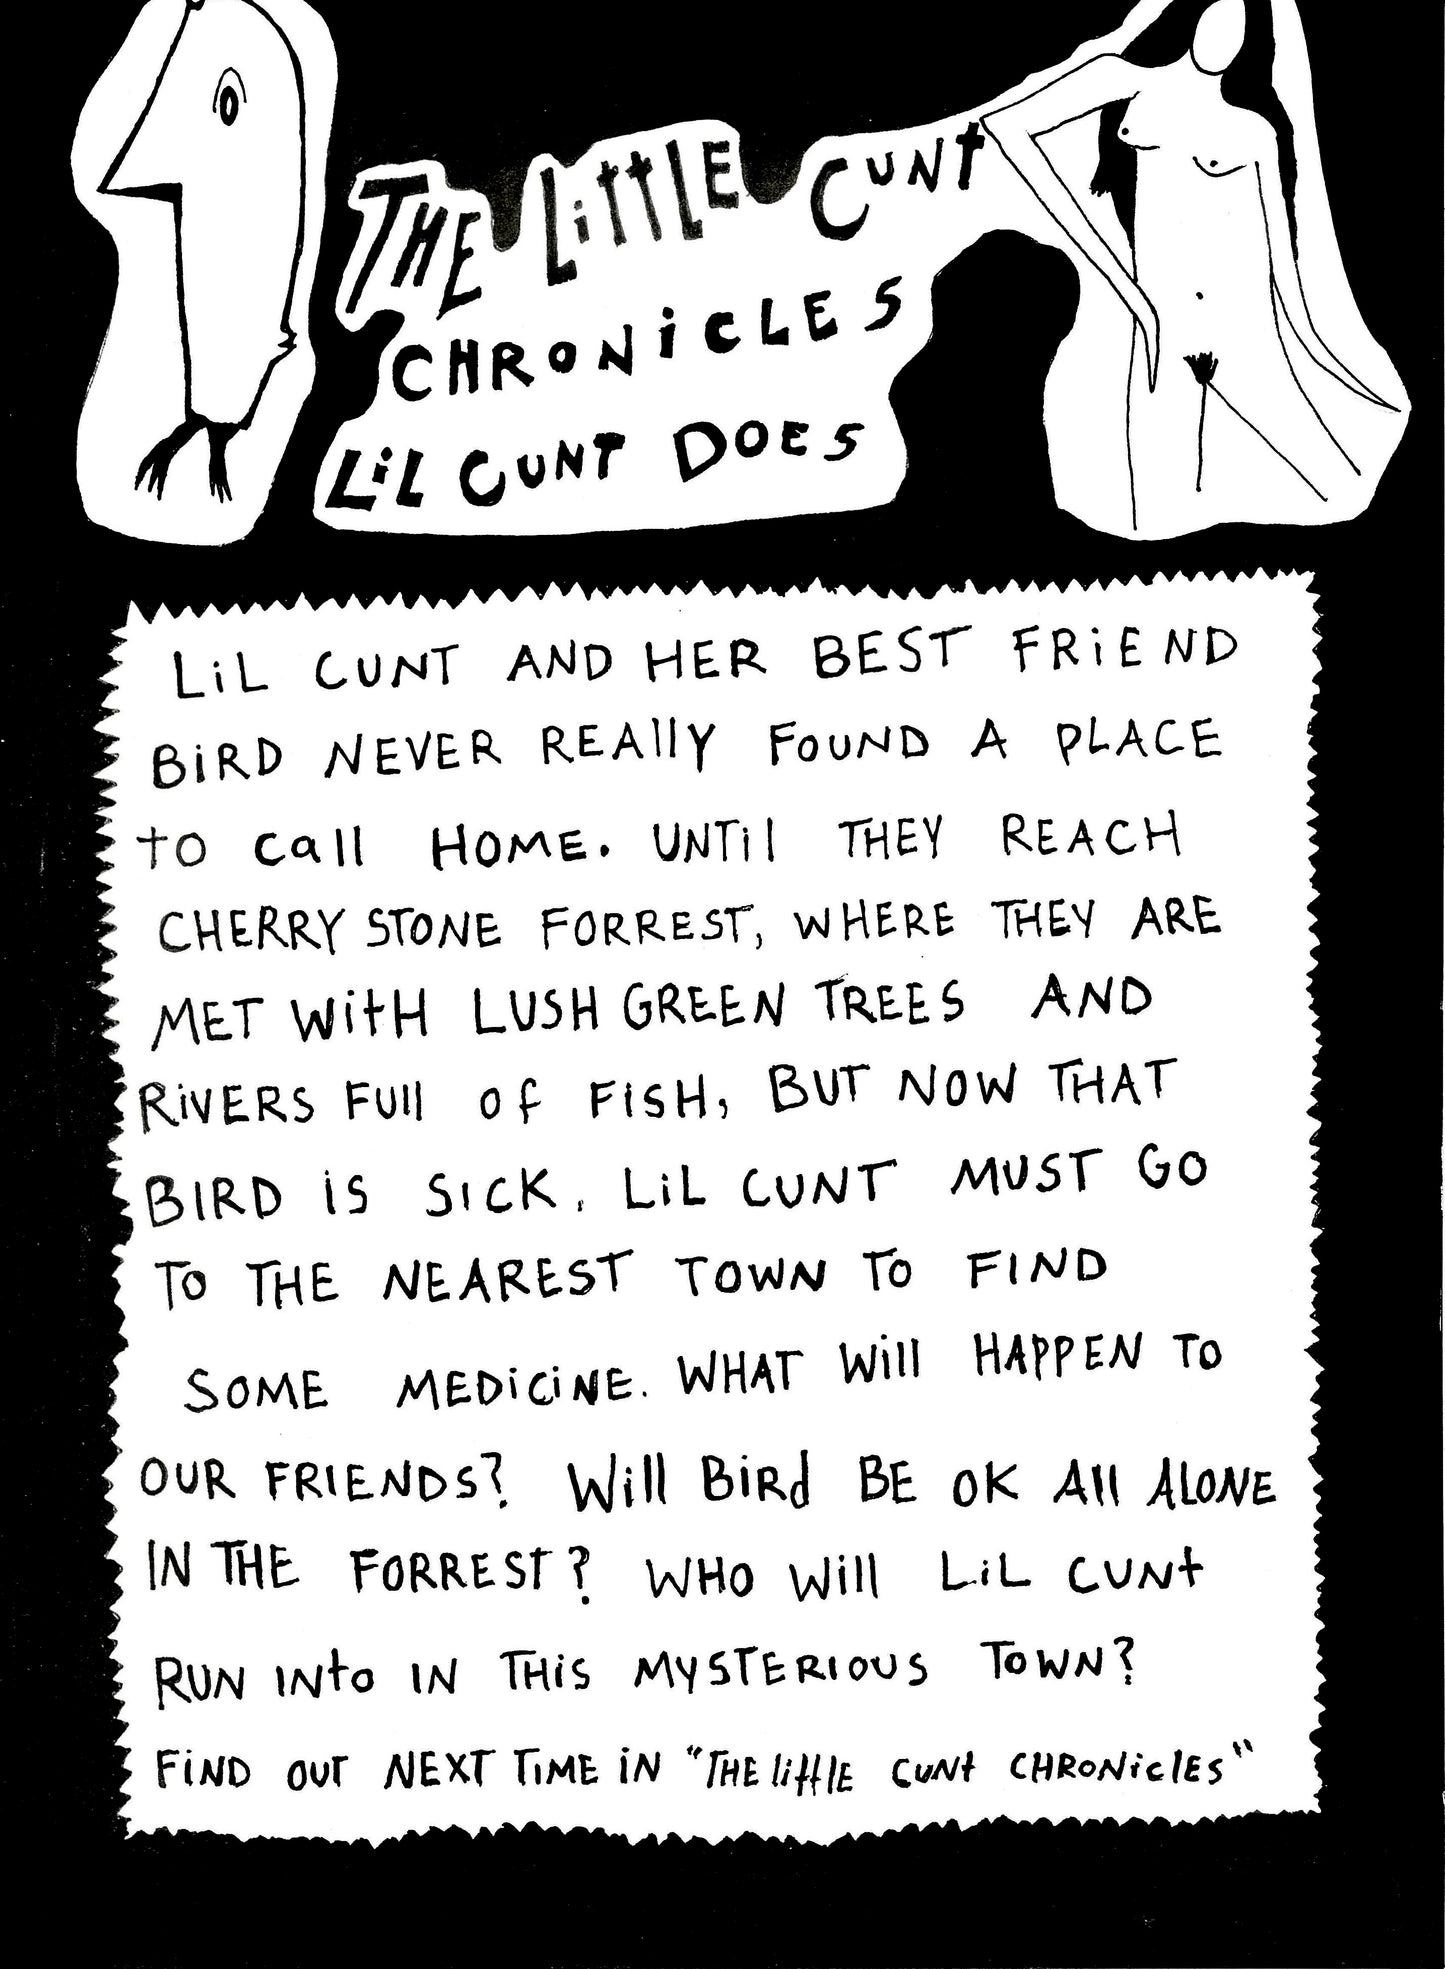 THE LiTTLE CUNT
CHRONiCLES
LiL CUNT DOES
LiL CUNT AND HER BEST FRiEND
BiRD NEVER REAllY FOUND A PLACE
TO call HOME. UNTil THEY REACH
CHERRY STONE FORREST, WHERE THEY ARE
MET WitH LUSH GREEN TREES AND
RiVERS FUll of FiSH, BUT NOW THAT
BIRD iS SICK, LiL CUNT MUST GO
TO THE NEAREST TOWN TO FIND
SOME MEDiCiNE. WHAT Will HAPPEN TO
OUR FRIENDS? Will BiRd BE OK All ALONE
IN THE FORREST? WHO Will LiL CUNt
RUN INto IN THiS MYSTERIOUS TOWN?
FiND OUT NEXT TiME iN "THE littlE CUNt CHRONiclES"